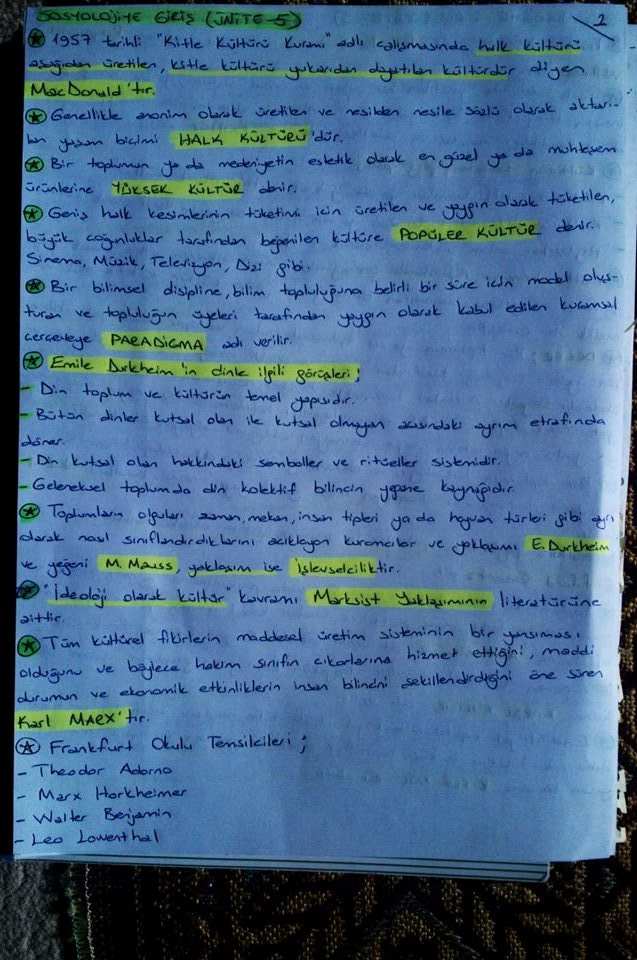 SOSYOLOJİYE GİRİŞ (ÜNİTE-5)
2
1957 tarihli "Kitle Kültürü Kuramı" adlı çalışmasında halk kültürü
aşağıdan üretilen, kitle kültürü yukarıdan dayatılan kültürdür diyen
MacDonald'tır.
Genellikle anonim olarak üretilen ve nesilden nesile sözlü olarak aktarı-
lan yaşam biçimi HALK KÜLTÜRÜ'dür.
Bir toplumun ya da medeniyetin estetik olarak en güzel ya da muhteşem
ürünlerine YÜKSEK KÜLTÜR denir.
Geniş halk kesimlerinin tüketimi için üretilen ve yaygın olarak tüketilen,
büyük çoğunluklar tarafından beğenilen kültüre POPÜLER KÜLTÜR denir.
Sinema, Müzik, Televizyon, Dizi gibi.
Bir bilimsel disipline, bilim topluluğuna belirli bir süre için model oluş-
turan ve topluluğun üyeleri tarafından yaygın olarak kabul edilen kuramsal
çerçeveye PARADİGMA adı verilir.
Emile Durkheim'in dinle ilgili görüşleri;
- Din toplum ve kültürün temel yapısıdır.
- Bütün dinler kutsal olan ile kutsal olmayan arasındaki ayrım etrafında
döner.
- Din kutsal olan hakkındaki semboller ve ritüeller sistemidir.
- Geleneksel toplumda din kolektif bilincin yegane kaynağıdır.
Toplumların olguları zaman, mekan, insan tipleri ya da hayvan türleri gibi ayrı
olarak nasıl sınıflandırdıklarını açıklayan kuramcılar ve yaklaşımı E. Durkheim
ve yeğeni M. Mauss, yaklaşım ise İşlevselciliktir.
"İdeoloji olarak kültür" kavramı Marksist Yaklaşımının literatürüne
aittir.
Tüm kültürel fikirlerin maddesel üretim sisteminin bir yansıması
olduğunu ve böylece hakim sınıfın çıkarlarına hizmet ettiğini, maddi
durumun ve ekonomik etkinliklerin insan bilincini şekillendirdiğini öne süren
Karl MARX'tır.
Frankfurt Okulu Temsilcileri;
- Theodor Adorno
- Marx Horkheimer
- Walter Benjamin
- Leo Lowenthal